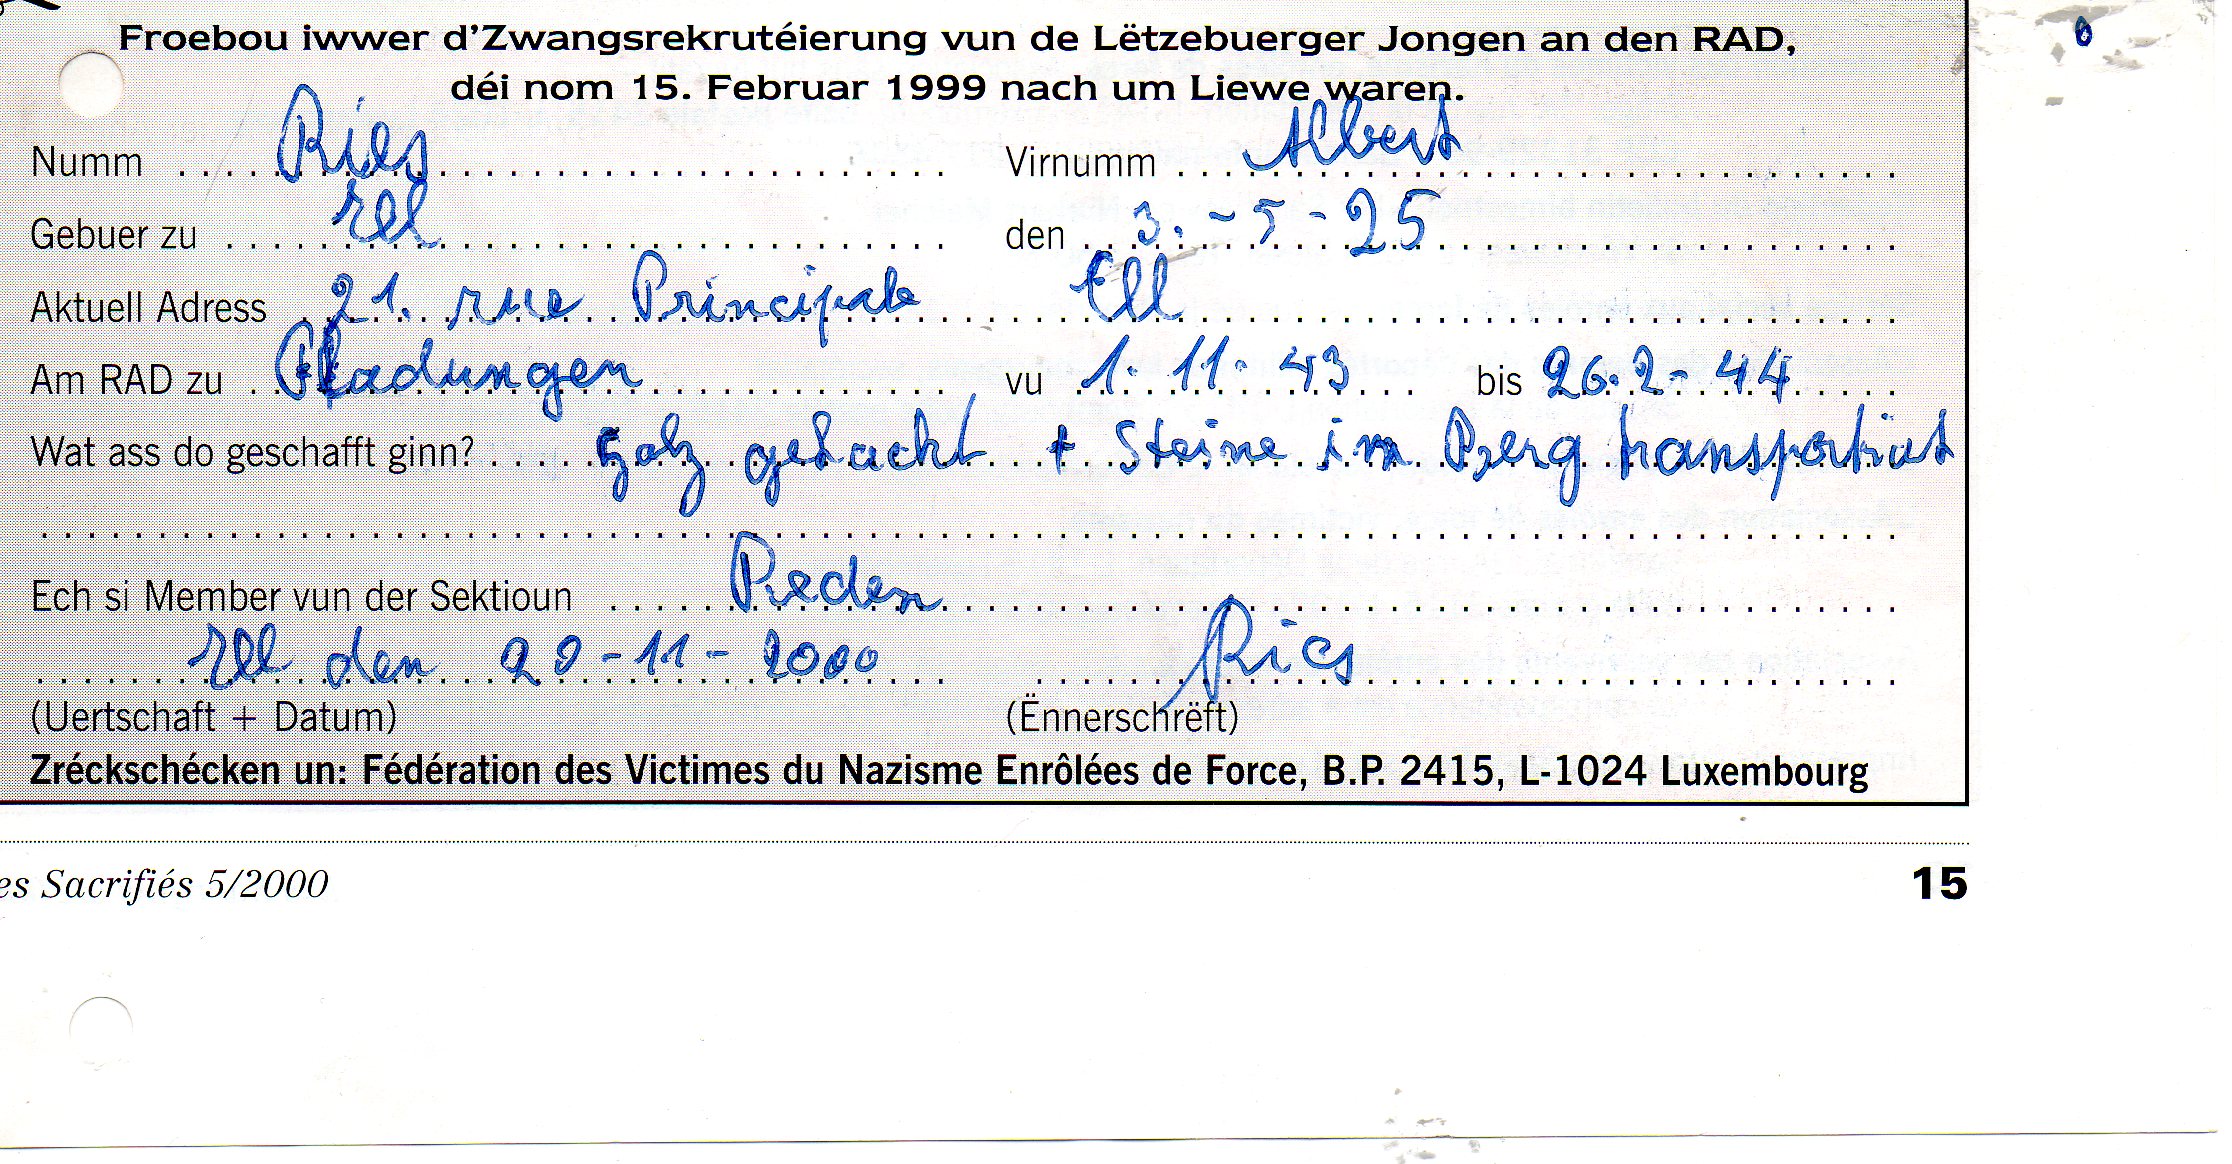 Froebou iwwer d'Zwangsrekrutéierung vun de Lëtzebuerger Jongen an den RAD,
déi nom 15. Februar 1999 nach um Liewe waren.
Numm Ries Virnumm Albert
Gebuer zu Ell den 3.-5-25
Aktuell Adress 21. rue Principale Ell
Am RAD zu Fladungen vu 1.11.43 bis 26.2-44
Wat ass do geschafft ginn? Holz gehackt + Steine im Berg transportiert
Ech si Member vun der Sektioun Reden
Ell den 20-11-2000 Ries
(Uertschaft + Datum) (Ënnerschrëft)
Zréckschécken un: Fédération des Victimes du Nazisme Enrôlées de Force, B.P. 2415, L-1024 Luxembourg
es Sacrifiés 5/2000 15